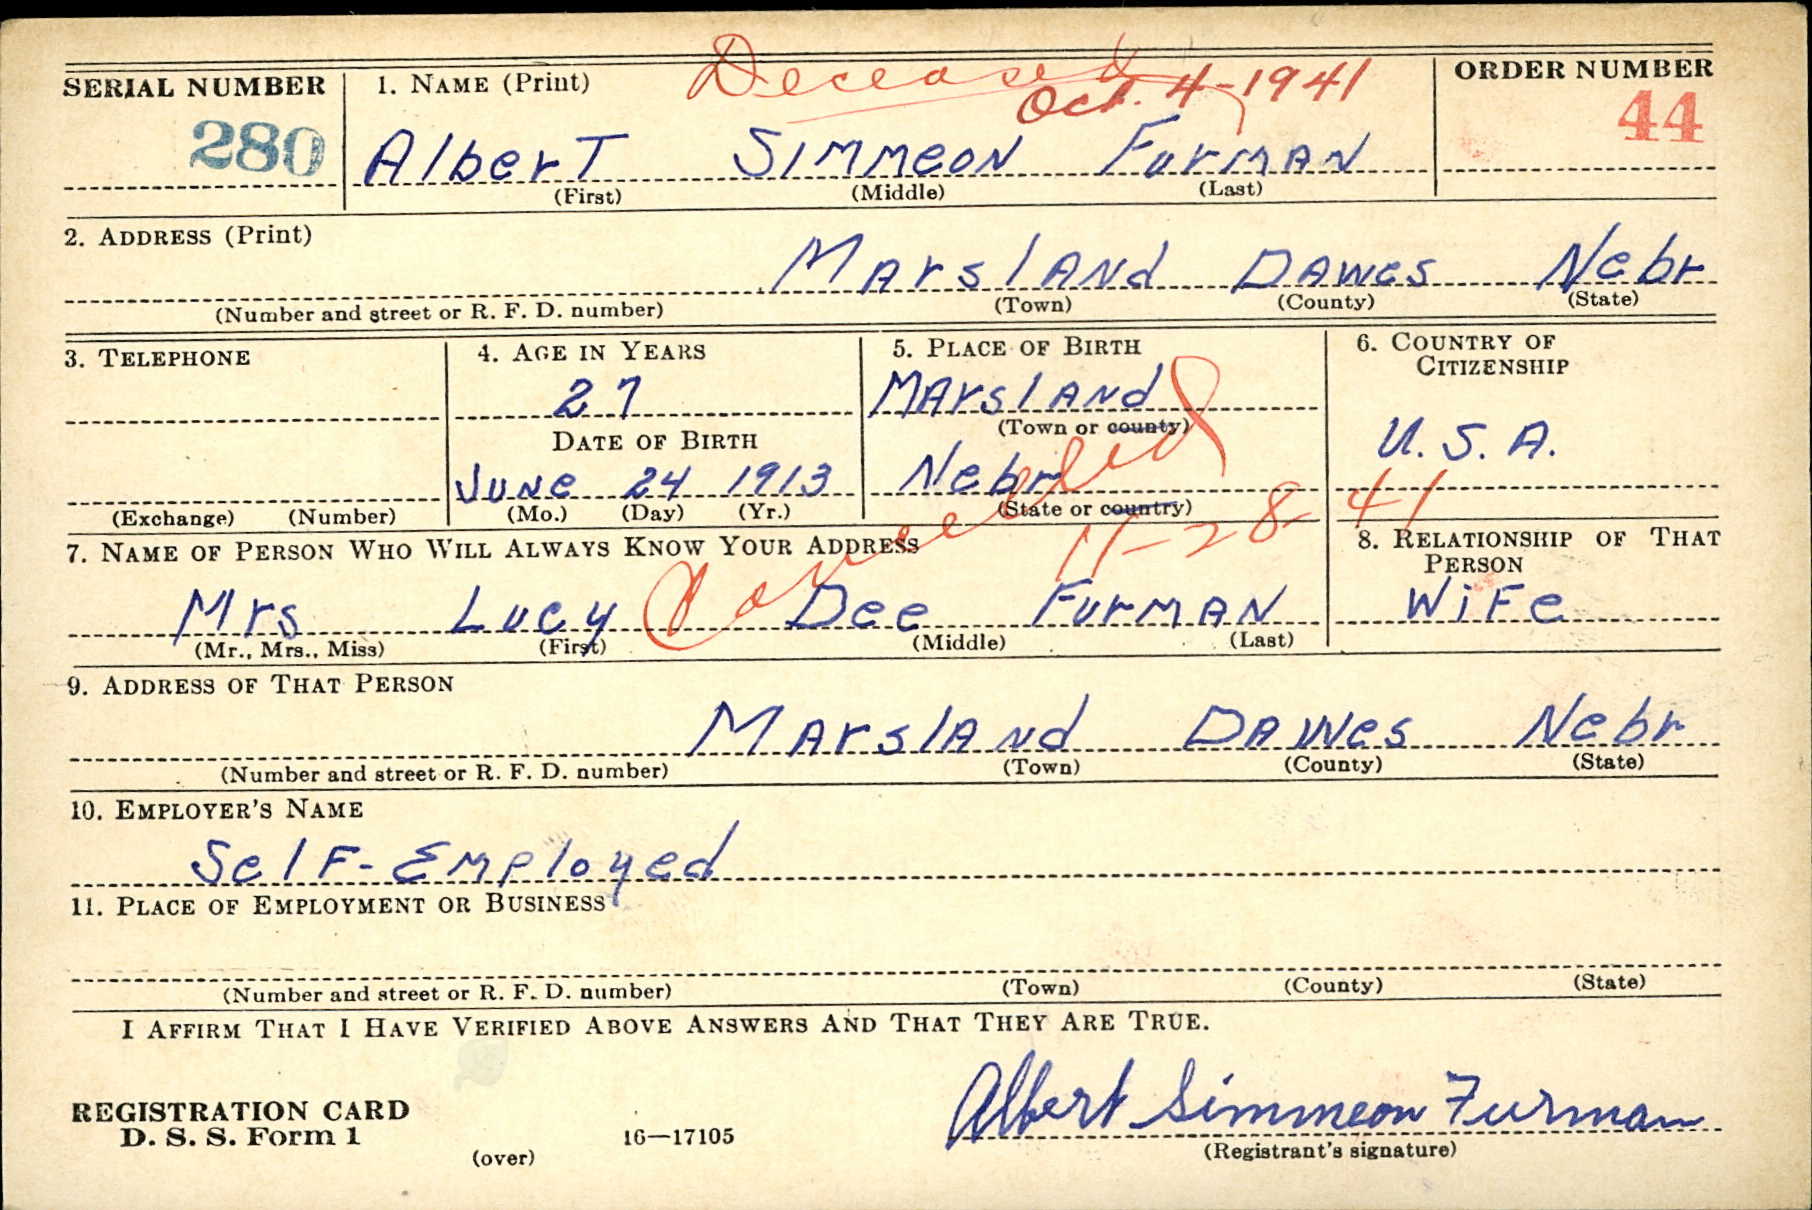 SERIAL NUMBER 1. NAME (Print) Deceased ORDER NUMBER
Oct. 4-1941
280 Albert Simmeon Furman 44
(First) (Middle) (Last)
2. ADDRESS (Print)
Marsland Dawes Nebr
(Number and street or R. F. D. number) (Town) (County) (State)
3. TELEPHONE 4. AGE IN YEARS 5. PLACE OF BIRTH 6. COUNTRY OF CITIZENSHIP
27 Marsland
(Town or county)
DATE OF BIRTH U. S. A.
June 24 1913 Nebr
(Exchange) (Number) (Mo.) (Day) (Yr.) (State or country)
Cancelled 11-28-41
7. NAME OF PERSON WHO WILL ALWAYS KNOW YOUR ADDRESS 8. RELATIONSHIP OF THAT PERSON
Mrs Lucy Dee Furman Wife
(Mr., Mrs., Miss) (First) (Middle) (Last)
9. ADDRESS OF THAT PERSON
Marsland Dawes Nebr
(Number and street or R. F. D. number) (Town) (County) (State)
10. EMPLOYER'S NAME
Self-Employed
11. PLACE OF EMPLOYMENT OR BUSINESS
(Number and street or R. F. D. number) (Town) (County) (State)
I AFFIRM THAT I HAVE VERIFIED ABOVE ANSWERS AND THAT THEY ARE TRUE.
Albert Simmeon Furman
REGISTRATION CARD
D. S. S. Form 1 16—17105 (Registrant's signature)
(over)